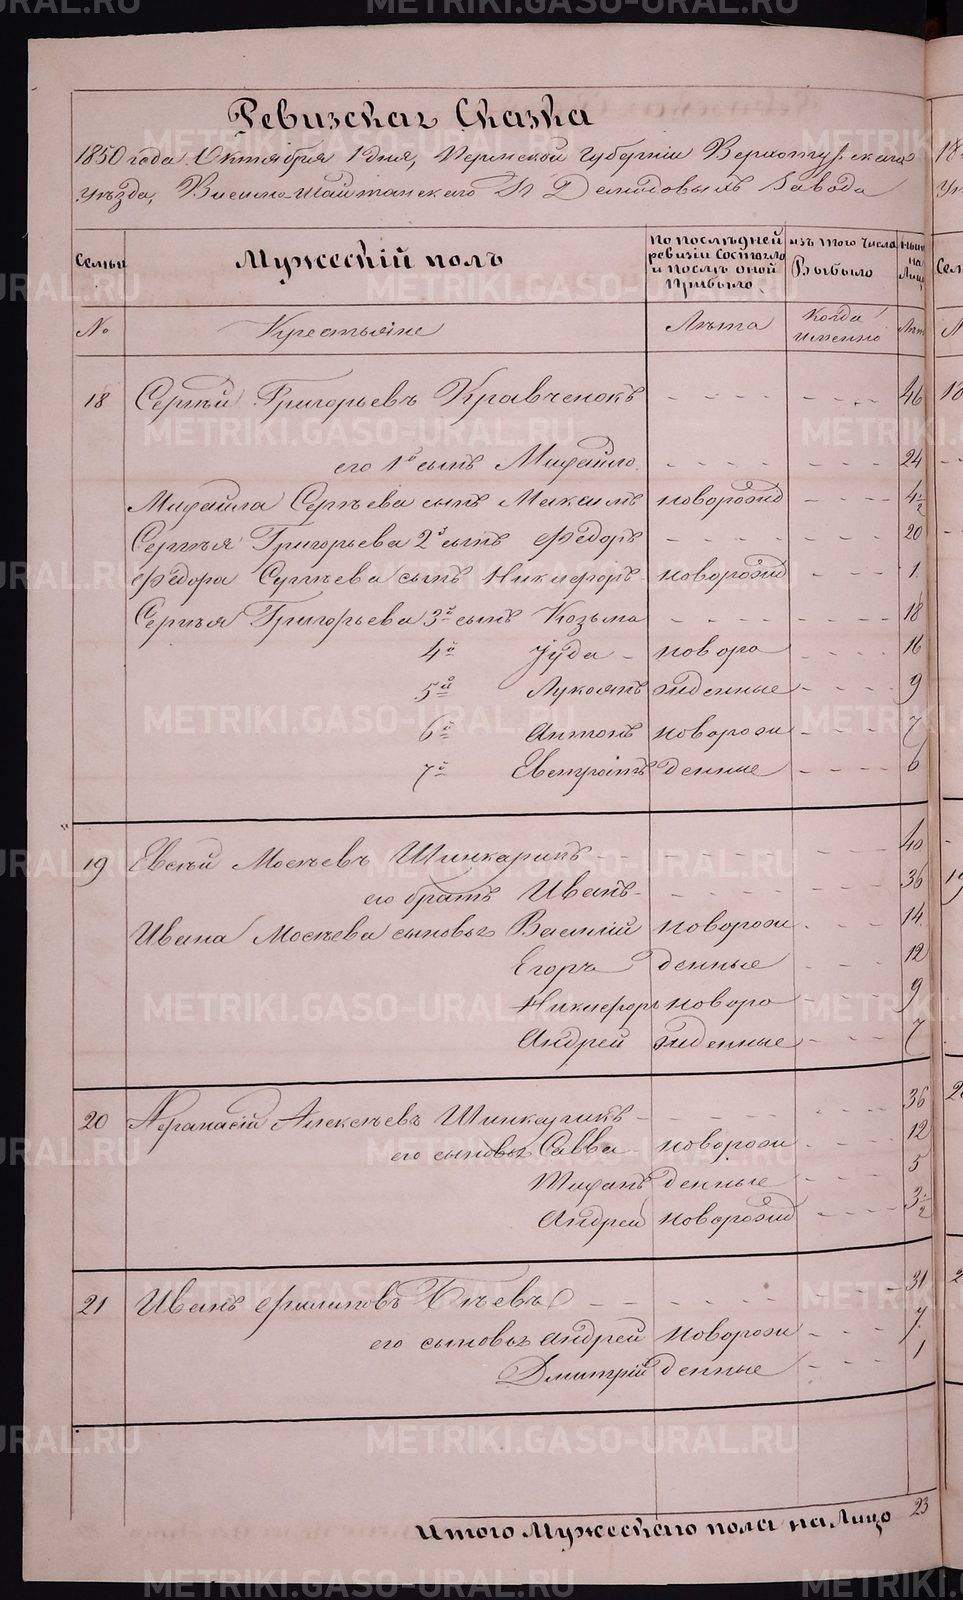 Ревизская Сказка
1850 года Октября 1 дня, Пермской Губерніи Верхотурскаго
уѣзда, Висимо-Шайтанскаго Н Демидовыхъ Завода
Семьи
Мужескій полъ
по послѣдней ревизіи Состояло и послѣ оной Прибыло
изъ того Числа Выбыло
ныне на Лицо
№
Крестьяне
Лѣта
Когда именно
Лѣта
18 Сергѣй Григорьевъ Кравченокъ - - - - - - - - 46
его 1й сынъ Михайло - - - - - - - - 24
Михайла Сергѣева сынъ Максимъ новорожд - - - - 4 1/2
Сергѣя Григорьева 2й сынъ Ѳедоръ - - - - - - - - 20
Ѳедора Сергѣева сынъ Никифоръ новорожд - - - - 1
Сергѣя Григорьева 3й сынъ Козьма - - - - - - - - 18
4й Іуда новоро - - - - 16
5й Лукоянъ жденные - - - - 9
6й Антонъ новорож - - - - 7
7й Евстропъ денные - - - - 6
19 Евсѣй Мосѣевъ Шинкаринъ - - - - - - - - 40
его братъ Иванъ - - - - - - - - 36
Ивана Мосѣева сыновья Василій новорож - - - 14
Егоръ денные - - - 12
Никифоръ новоро - - - 9
Андрей жденные - - - 7
20 Аѳанасій Алексѣевъ Шинкаринъ - - - - - - - - 36
его сыновья Савва новорож - - - 12
Тифанъ денные - - - 5
Андрей новорожд - - - - 3 1/2
21 Иванъ Филиповъ - - - - - - - - 31
его сыновья Андрей новорож - - - 7
Дмитрій денные - - - 1
Итого Мужескаго пола на Лицо 23
METRIKI.GASO-URAL.RU